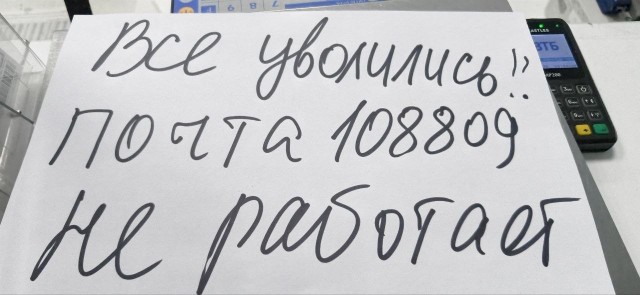 Все уволились!!
Почта 108809
не работает
ВТБ